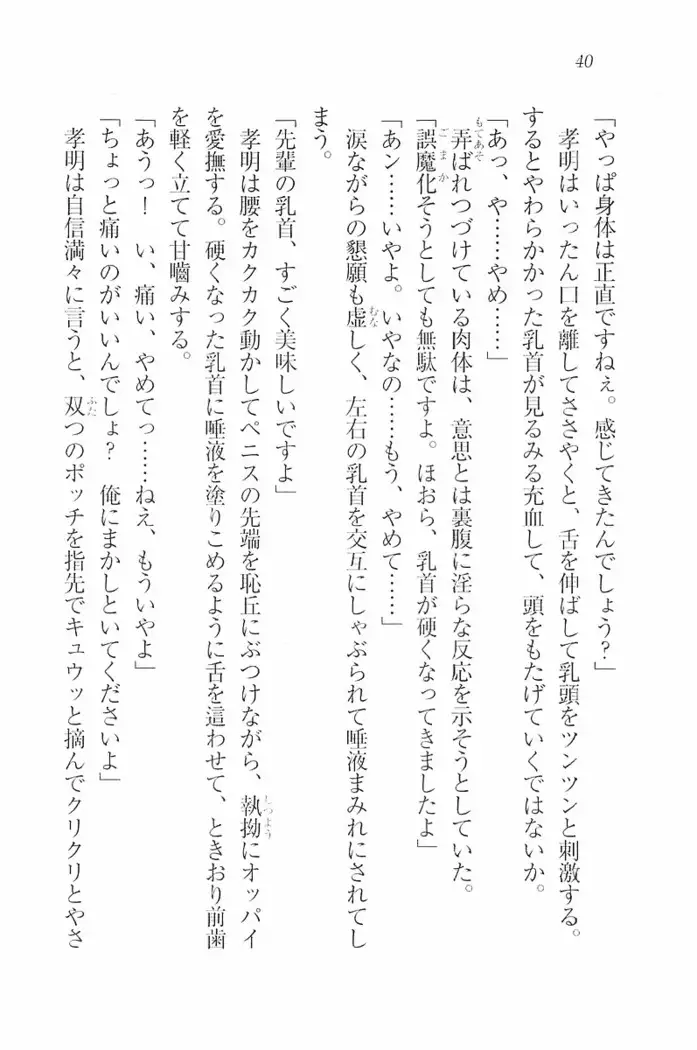 40
「やっぱ身体は正直ですねぇ。感じてきたんでしょう?」
孝明はいったん口を離してささやくと、舌を伸ばして乳頭をツンツンと刺激する。
するとやわらかかった乳首が見るみる充血して、頭をもたげていくではないか。
「あっ、や……やめ……」
もてあそ
弄ばれつづけている肉体は、意思とは裏腹に淫らな反応を示そうとしていた。
ごまか
「誤魔化そうとしても無駄ですよ。ほおら、乳首が硬くなってきましたよ」
「あン……いやよ。いやなの……もう、やめて……」
むな
涙ながらの懇願も虚しく、左右の乳首を交互にしゃぶられて唾液まみれにされてし
まう。
「先輩の乳首、すごく美味しいですよ」
しつよう
孝明は腰をカクカク動かしてペニスの先端を恥丘にぶつけながら、執拗にオッパイ
を愛撫する。硬くなった乳首に唾液を塗りこめるように舌を這わせて、ときおり前歯
を軽く立てて甘嚙みする。
「あうっ! い、痛い、やめてっ……ねえ、もういやよ」
「ちょっと痛いのがいいんでしょ? 俺にまかしといてくださいよ」
ふた
孝明は自信満々に言うと、双つのポッチを指先でキュウッと摘んでクリクリとやさ